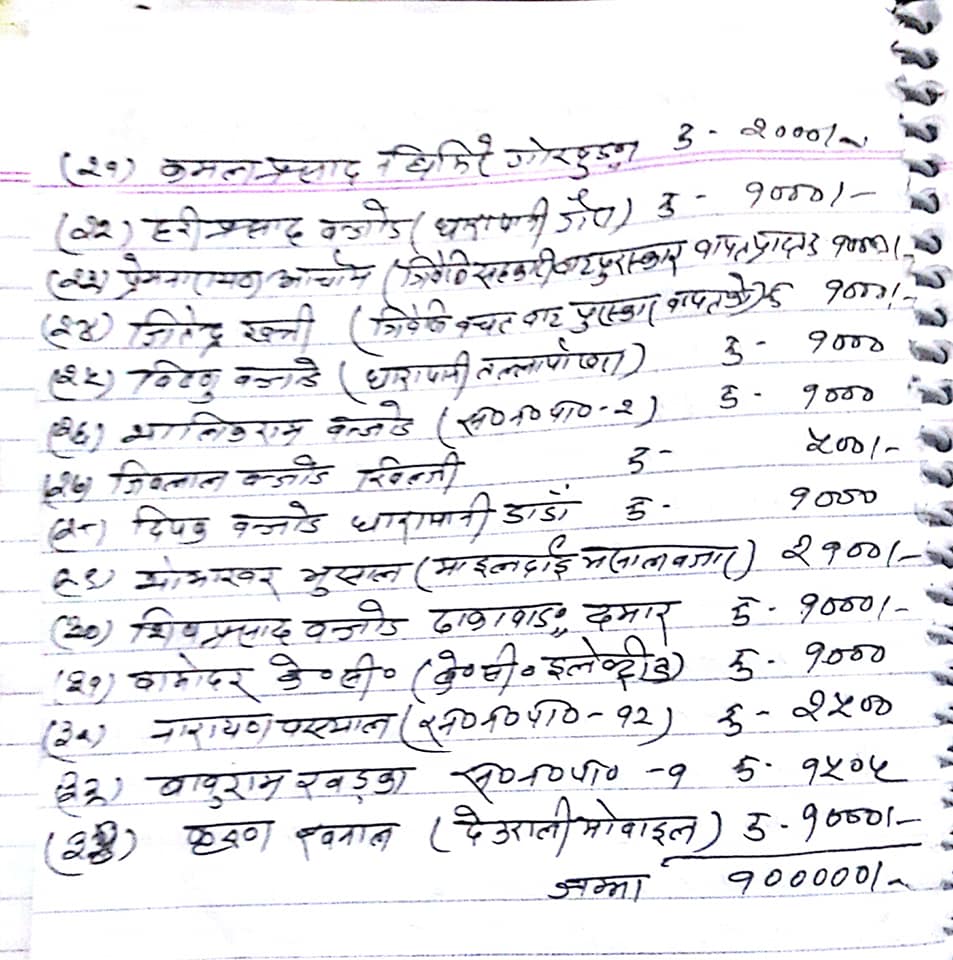 (२१) कमलप्रसाद घिमिरे गोरखुङ्गा रु - २०००/-
(२२) हरीप्रसाद वन्जाडे (धारापानी जौए) रु - १०००/-
(२३) प्रेमनारायण आचार्य (त्रिवेणि सहकारीबाट पुरस्कार वापत प्राप्त रु १०००/-
(२४) जितेन्द्र खत्री (त्रिवेणि बचत बाट पुरस्कार वापतको) रु १०००/-
(२५) विष्णु वन्जाडे (धारापानी तल्लापोखरा) रु - १०००
(२६) शालिकराम वन्जाडे (स०न०पा०-२) रु - १०००
(२७) जिवलाल वन्जाडे खिल्जी रु - ५००/-
(२८) दिपक वन्जाडे धारापानी डाडाँ रु - १०००
२९) ओमाखर भुसाल (माइलदाई मसालबजार) २१००/-
(३०) शिवप्रसाद वन्जाडे ढाकावाङ दमार रु - १०००/-
(३१) दामोदर के०सी० (के०सी० इलेक्ट्रीक) रु - १०००
(३२) नारायण पस्थाल (स०न०पा०-१२) रु - २५००
३३) बाबुराम खड्का स०न०पा० -१ रु - १५०५
(३४) कृष्ण खनाल (देउराली मोबाइल) रु - १०००/-
जम्मा १०००००/-